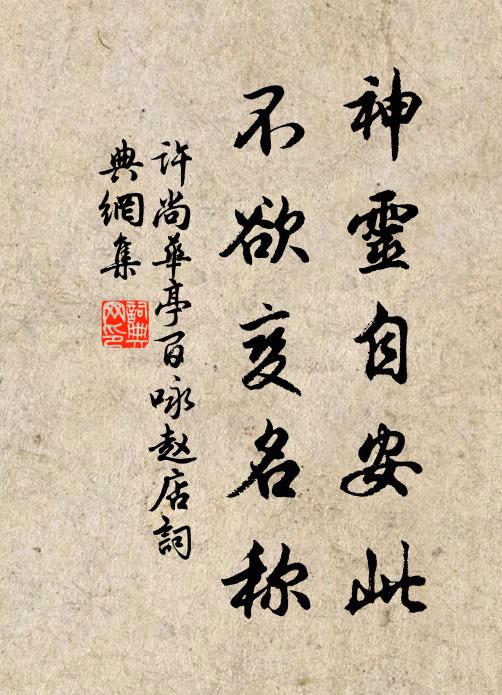 神靈自安此
不欲变名称
许尚華亭百咏赵店詞
典網集
詞典
网印